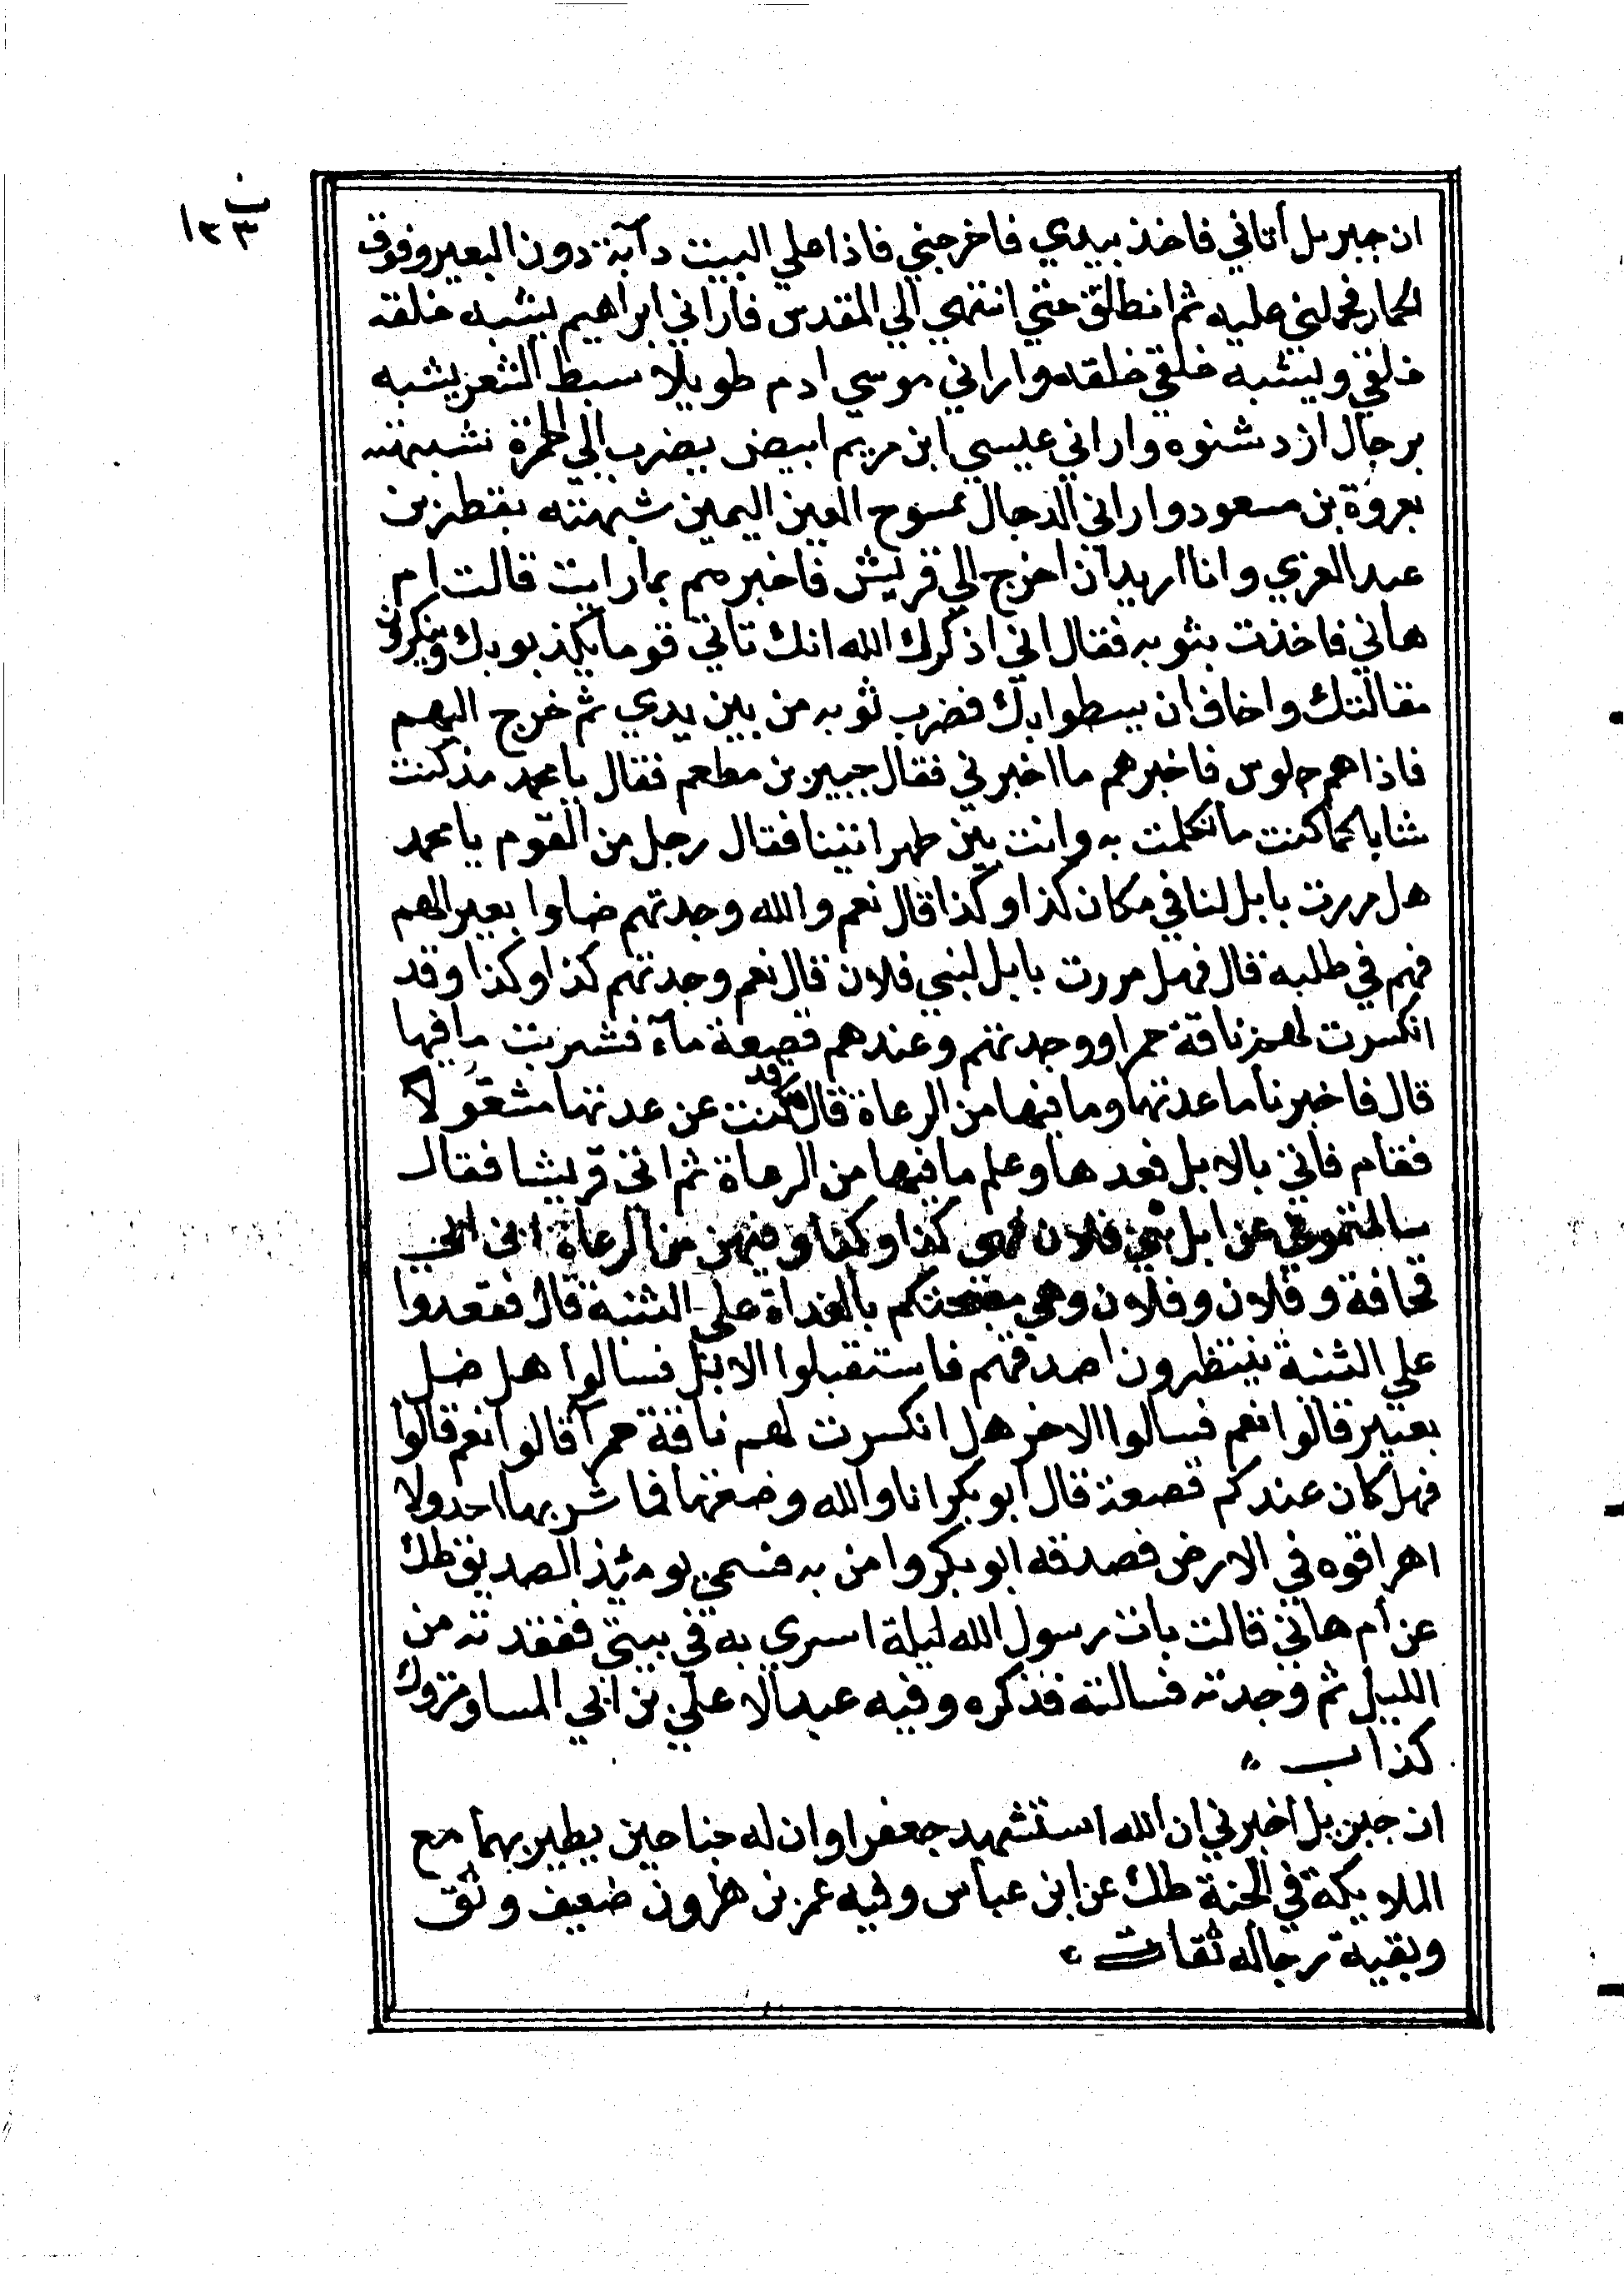 ب
١٣٣
ان جبريل أتاني فاخذ بيدي فاخرجني فاذا علي البيت دآبة دون البعير وفوق
الحمار فحملني عليه ثم انطلق حتي انتهي الي المقدس فاراني ابراهيم يشبه خلقه
خلقي ويشبه خلقي خلقه واراني موسي ادم طويلا سبط الشعر يشبه
برجال ازد شنوه واراني عيسي ابن مريم ابيض يضرب الي الحمرة شبهته
بعروة بن مسعود واراني الدجال ممسوح العين اليمين شبهته بقطن بن
عبد العزي وانا اريد ان اخرج الي قريش فاخبرهم بما رايت قالت ام
هاني فاخذت بثوبه فقال اني اذكرك الله انك تاتي قوما يكذبوبك وينكرون
مقالتك واخاف ان يسطوا بك فضرب ثوبه من بين يدي ثم خرج اليهم
فاذا هم جلوس فاخبرهم ما اخبرني فقال جبير بن مطعم فقال يا محمد مذ كنت
شابا كما كنت ما تكلمت به وانت بين ظهرانينا فقال رجل من القوم يا محمد
هل مررت بابل لنا في مكان كذا وكذا قال نعم والله وجدتهم ضلوا بعيرا لهم
فهم في طلبه قال فهل مررت بابل لبني فلان قال نعم وجدتهم كذا وكذا وقد
انكسرت لهم ناقة حمرا ووجدتهم وعندهم قصعة مآء فشربت ما فيها
قال فاخبرنا ما عدتها وما فيها من الرعاة قال قد كنت عن عدتها مشغولا
فقام فاتي بالابل فعدها وعلم ما فيها من الرعاة ثم اتي قريشا فقال
سالتموني عن ابل بني فلان فهي كذا وكذا وفيهن من الرعاة ابن ابي
قحافة وفلان وفلان وهي مصبحتكم بالغداة علي الثنية قال فقعدوا
علي الثنية ينتظرون اصدقهم فاستقبلوا الابل فسالوا هل ضل
بعير قالوا نعم فسالوا الاخر هل انكسرت لهم ناقة حمرآ قالوا نعم قالوا
فهل كان عندكم قصعة قال ابو بكر انا والله وضعتها فما شربها احد ولا
اهراقوه في الارض فصدقه ابو بكر وامن به فسمي يومئذ الصديق طك
عن أم هاني قالت بات رسول الله ليلة اسري به في بيتي ففقدته من
الليل ثم وجدته فسالته فذكره وفيه عبد الاعلي بن ابي المساور متروك
كذاب
ان جبريل أخبرني ان الله استشهد جعفرا وان له جناحين يطير بهما مع
الملايكة في الجنة طك عن ابن عباس وفيه عمر بن هرون ضعيف وثق
وبقية رجاله ثقات